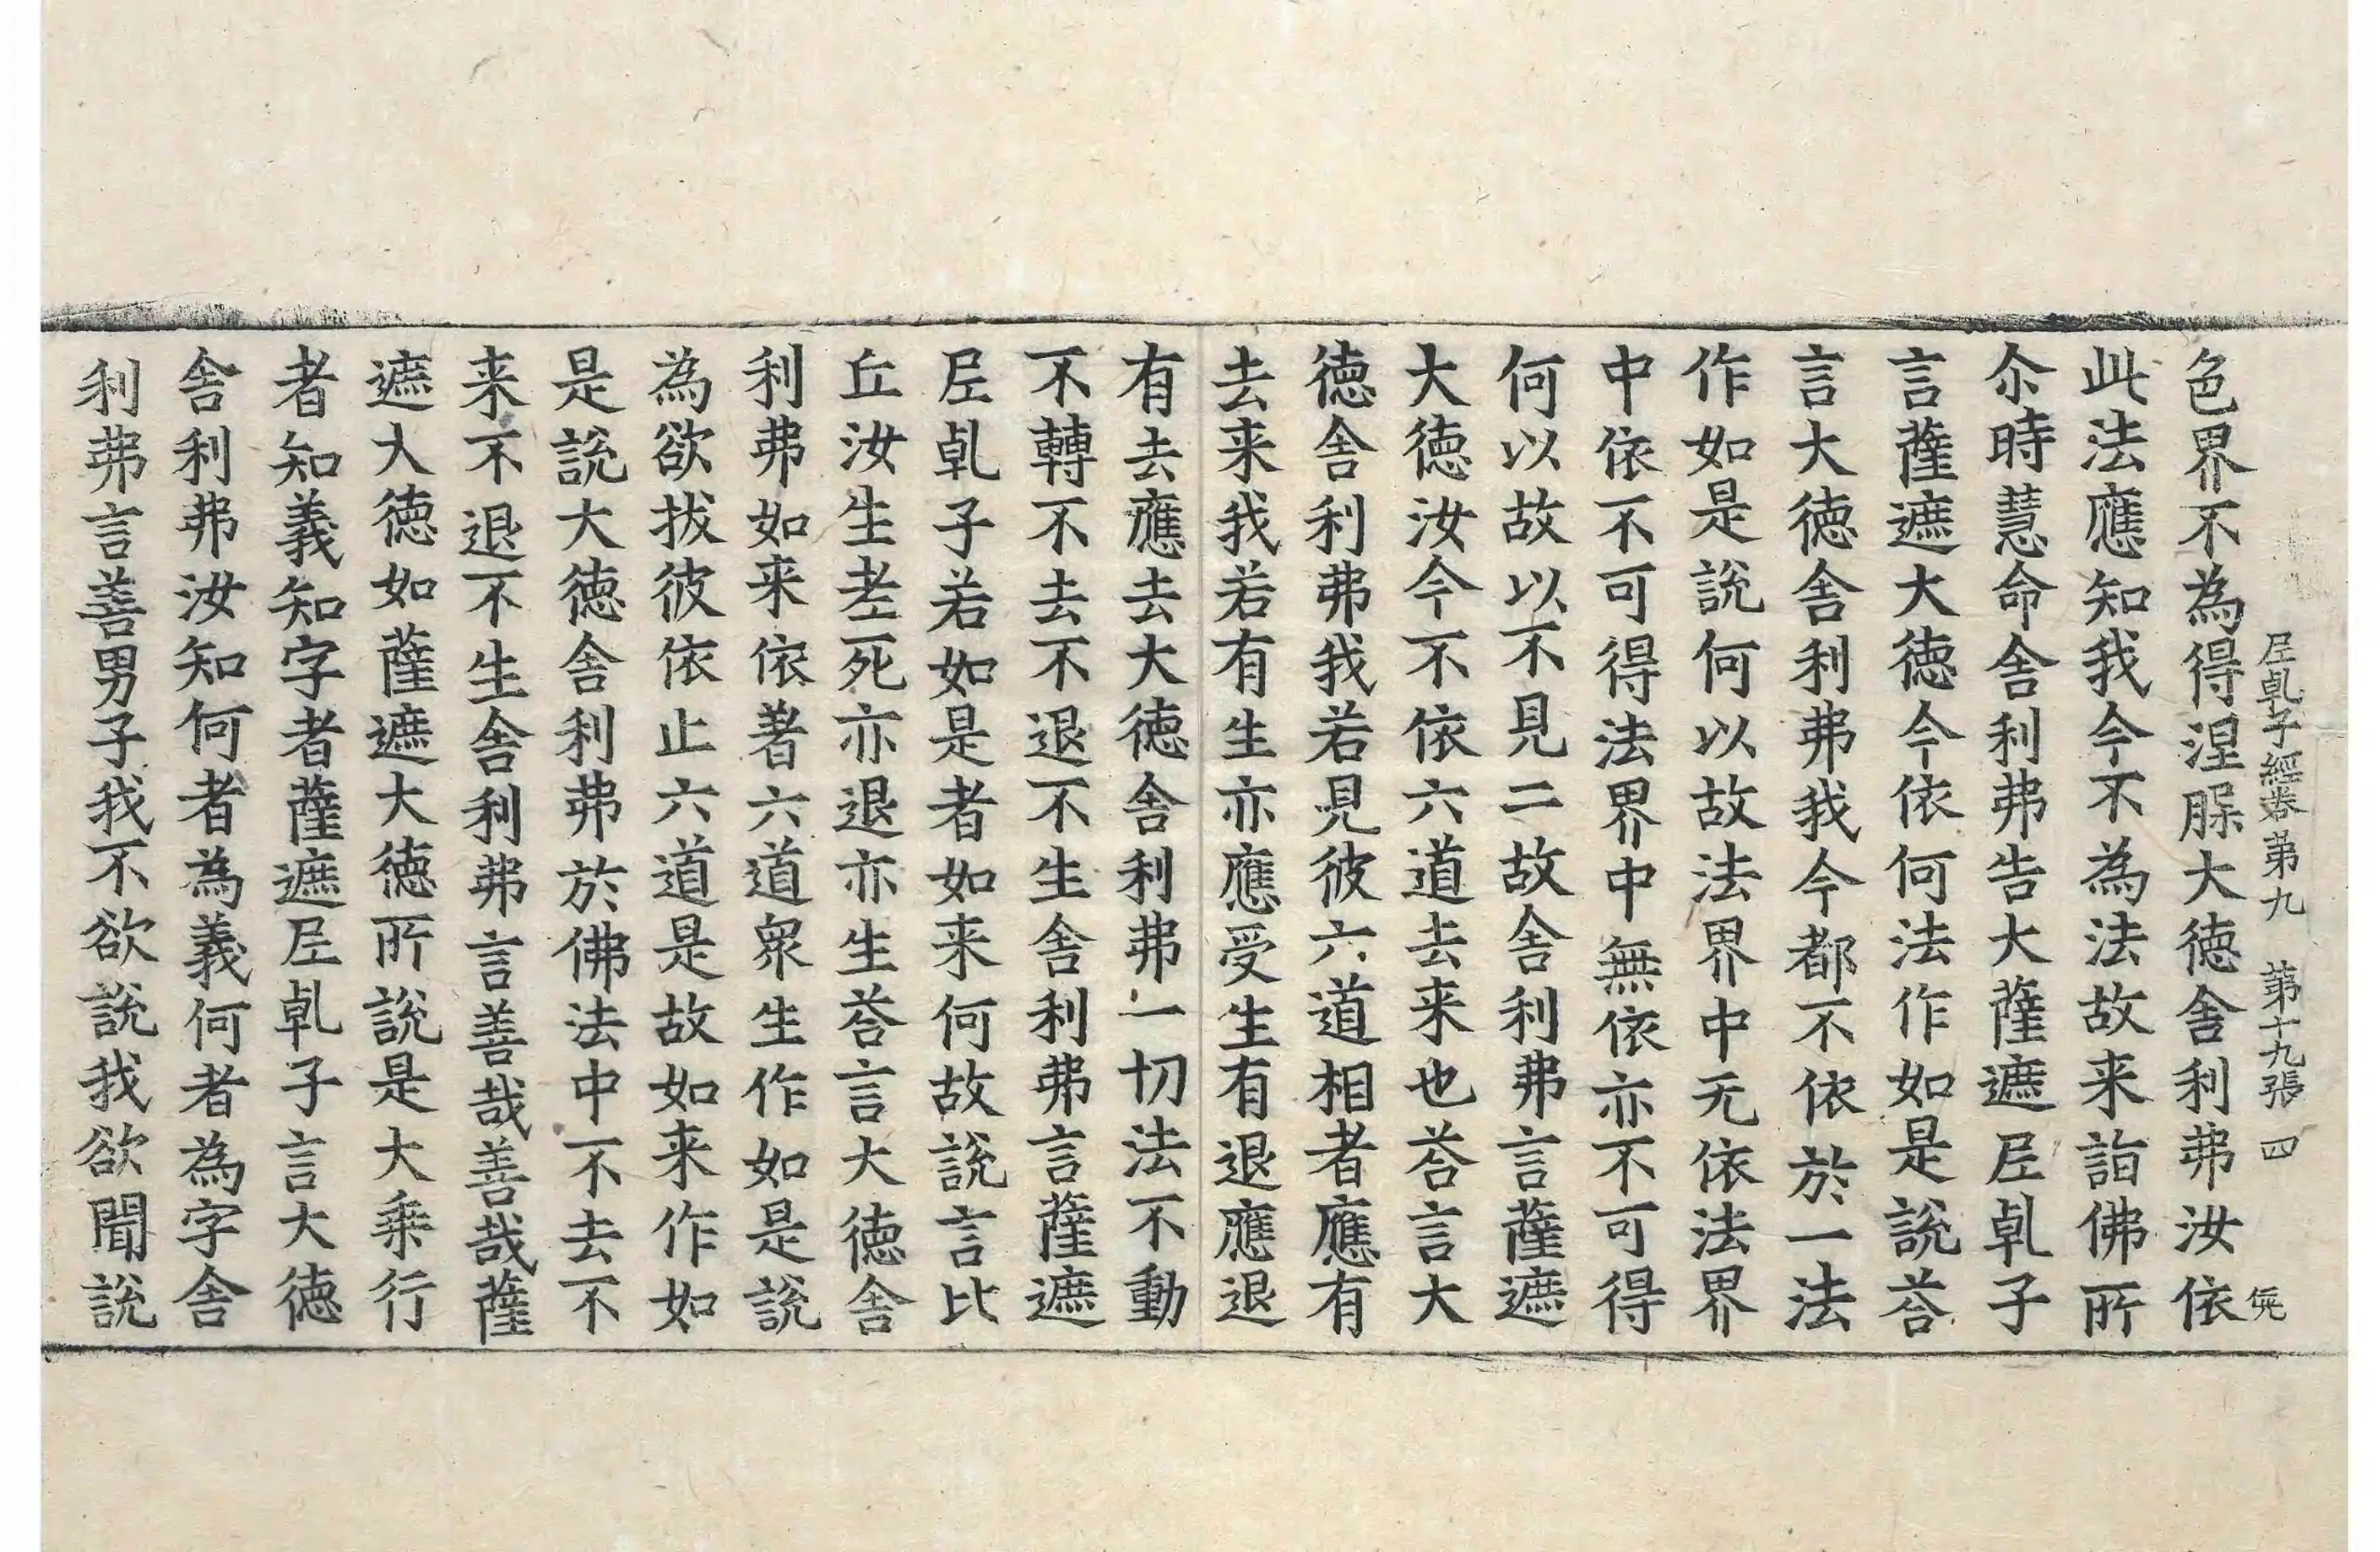 𡰱乹子經卷第九　第十九張　四
色界不為得涅𦙾大徳舎利弗汝依
此法應知我今不為法故来詣佛所
尒時慧命舎利弗告大薩遮𡰱乹子
言薩遮大徳今依何法作如是說荅
言大徳舎利弗我今都不依於一法
作如是說何以故法界中无依法界
中依不可得法界中無依亦不可得
何以故以不見二故舎利弗言薩遮
大徳汝今不依六道去来也荅言大
徳舎利弗我若見彼六道相者應有
去来我若有生亦應受生有退應退
有去應去大徳舎利弗一切法不動
不轉不去不退不生舎利弗言薩遮
𡰱乹子若如是者如来何故說言比
丘汝生老死亦退亦生荅言大徳舎
利弗如来依著六道衆生作如是說
為欲拔彼依止六道是故如来作如
是說大徳舎利弗於佛法中不去不
来不退不生舎利弗言善哉善哉薩
遮大徳如薩遮大徳所說是大乗行
者知義知字者薩遮𡰱乹子言大徳
舎利弗汝知何者為義何者為字舎
利弗言善男子我不欲說我欲聞說